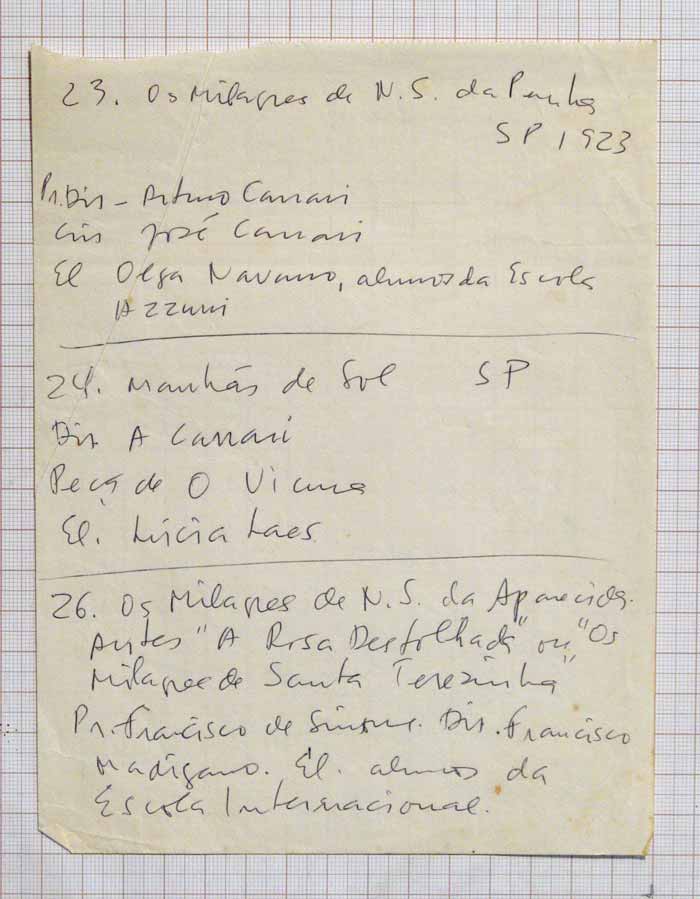 23. Os Milagres de N. S. da Penha
SP 1923
Pr. Dir - Arturo Carrari
José Carrari
El Olga Navarro, alunos da Escola
Azzurri
24. Manhãs de Sol SP
Dir A Carrari
Peça de O Viana
El. Lúcia Laes
26. Os Milagres de N. S. da Aparecida.
Antes "A Rosa Desfolhada" ou "Os
Milagres de Santa Terezinha"
Pr. Francisco de Simone. Dir. Francisco
Madigano. El. alunos da
Escola Internacional.